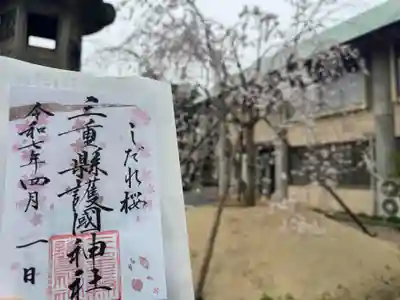 しだれ桜
三重縣護國神社
令和七年四月一日